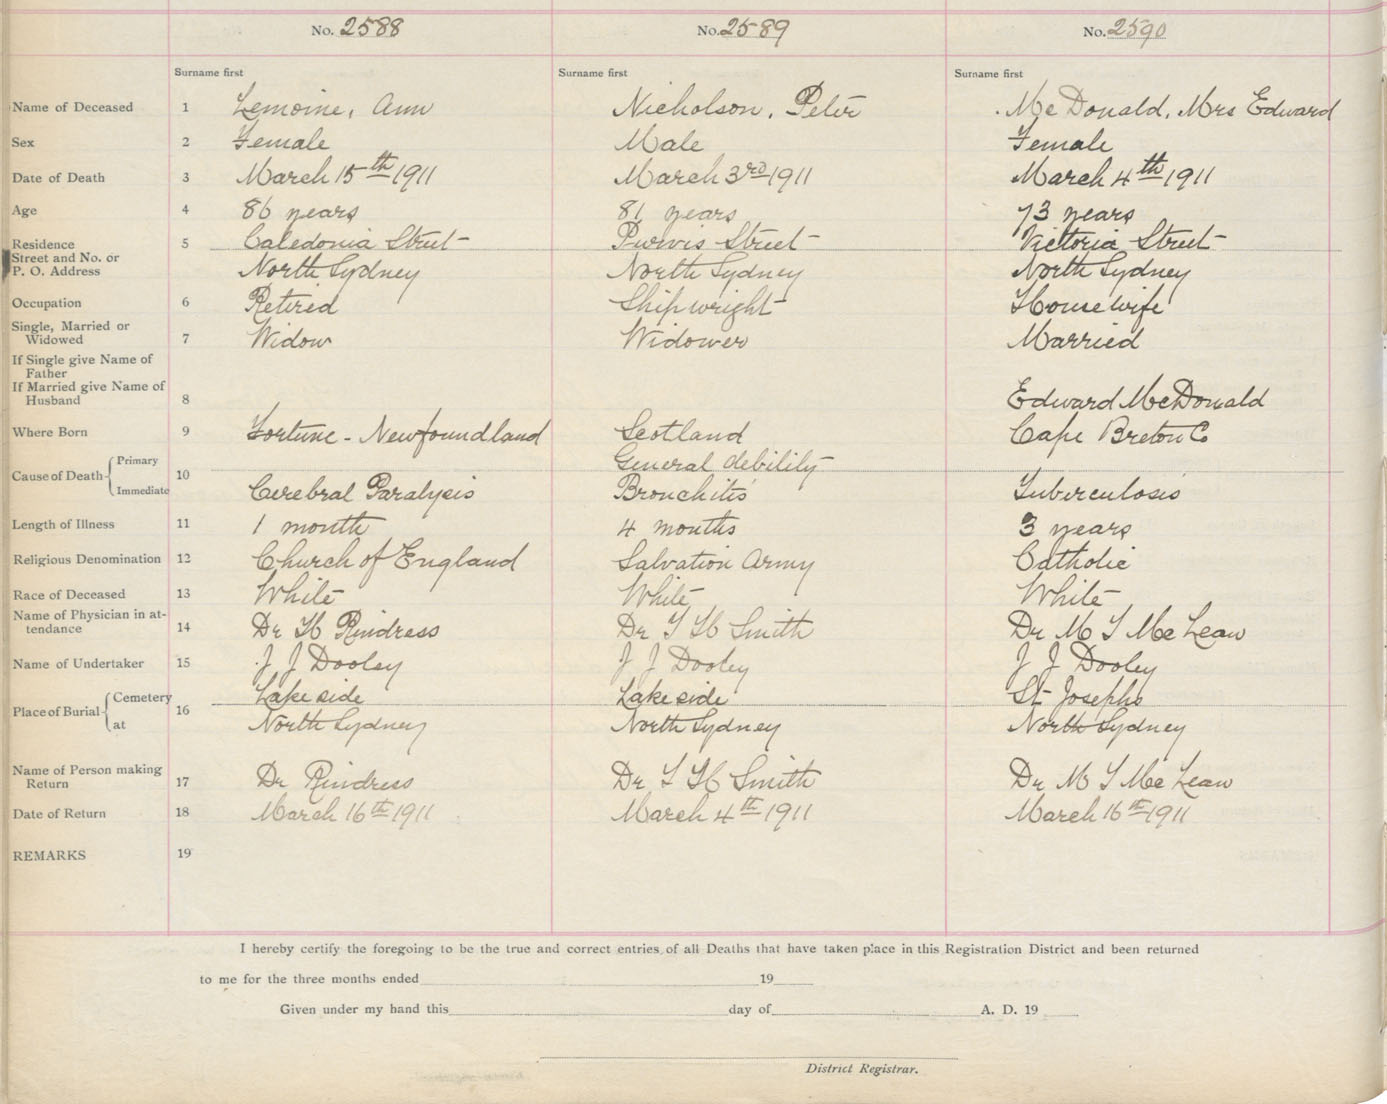 No. 2588 No. 2589 No. 2590
Surname first Surname first Surname first
Name of Deceased 1 Lemoine, Ann Nicholson, Peter McDonald, Mrs Edward
Sex 2 Female Male Female
Date of Death 3 March 15th 1911 March 3rd 1911 March 4th 1911
Age 4 86 years 81 years 73 years
Residence 5 Caledonia Street Purvis Street Victoria Street
Street and No. or
P. O. Address North Sydney North Sydney North Sydney
Occupation 6 Retired Shipwright Housewife
Single, Married or
Widowed 7 Widow Widower Married
If Single give Name of
Father
If Married give Name of
Husband 8 Edward McDonald
Where Born 9 Fortune - Newfoundland Scotland Cape Breton Co
Cause of Death Primary 10 General debility
Immediate Cerebral Paralysis Bronchitis Tuberculosis
Length of Illness 11 1 month 4 months 3 years
Religious Denomination 12 Church of England Salvation Army Catholic
Race of Deceased 13 White White White
Name of Physician in at-
tendance 14 Dr H Rindress Dr T H Smith Dr M T McLean
Name of Undertaker 15 J J Dooley J J Dooley J J Dooley
Place of Burial Cemetery 16 Lakeside Lakeside St Josephs
at North Sydney North Sydney North Sydney
Name of Person making
Return 17 Dr Rindress Dr T H Smith Dr M T McLean
Date of Return 18 March 16th 1911 March 4th 1911 March 16th 1911
REMARKS 19
I hereby certify the foregoing to be the true and correct entries of all Deaths that have taken place in this Registration District and been returned
to me for the three months ended 19
Given under my hand this day of A. D. 19
District Registrar.